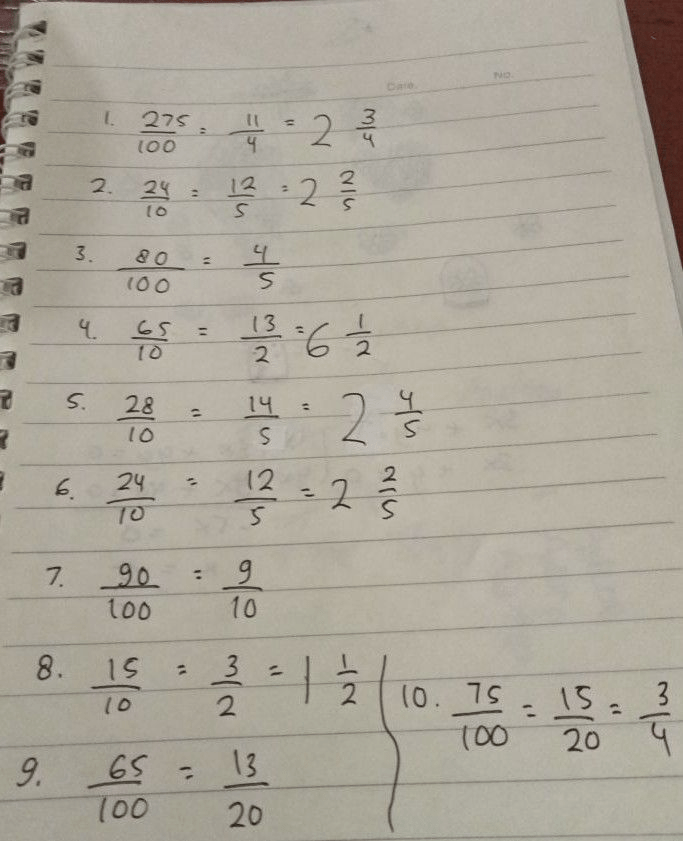 Date. No.
1. 275/100 = 11/4 = 2 3/4
2. 24/10 = 12/5 = 2 2/5
3. 80/100 = 4/5
4. 65/10 = 13/2 = 6 1/2
5. 28/10 = 14/5 = 2 4/5
6. 24/10 = 12/5 = 2 2/5
7. 90/100 = 9/10
8. 15/10 = 3/2 = 1 1/2
9. 65/100 = 13/20
10. 75/100 = 15/20 = 3/4